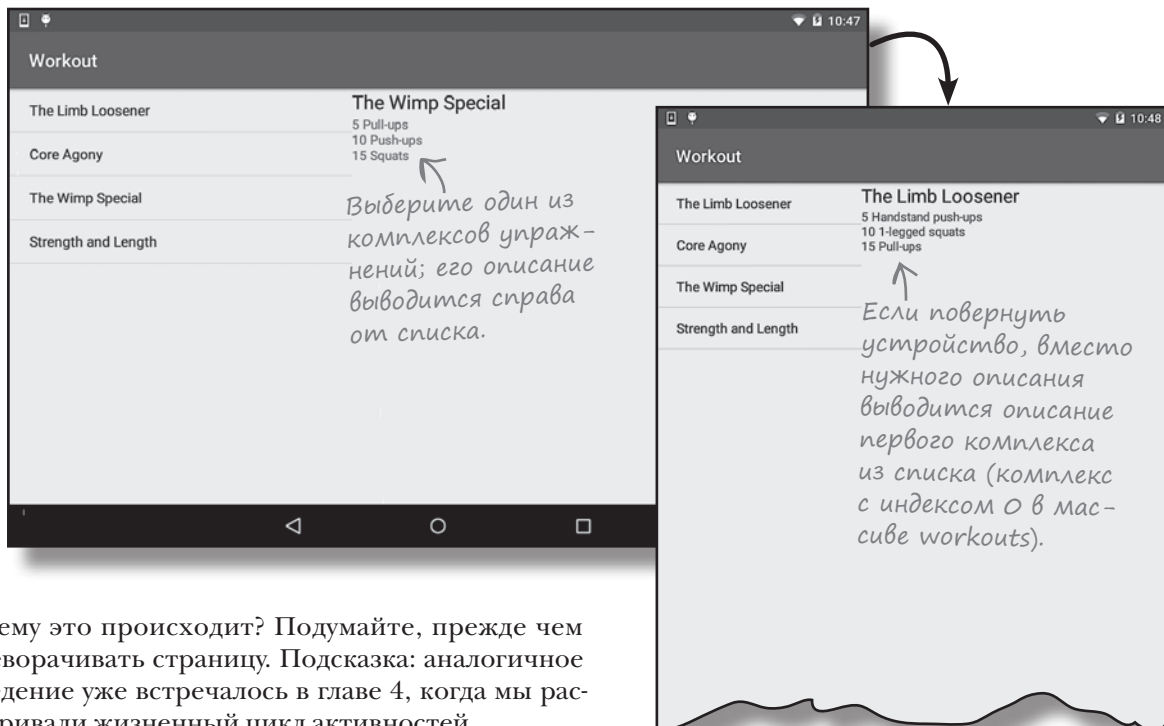 10:47
Workout
The Limb Loosener
Core Agony
The Wimp Special
Strength and Length
The Wimp Special
5 Pull-ups
10 Push-ups
15 Squats
Выберите один из
комплексов упраж-
нений; его описание
выводится справа
от списка.
10:48
Workout
The Limb Loosener
Core Agony
The Wimp Special
Strength and Length
The Limb Loosener
5 Handstand push-ups
10 1-legged squats
15 Pull-ups
Если повернуть
устройство, вместо
нужного описания
выводится описание
первого комплекса
из списка (комплекс
с индексом 0 в мас-
сиве workouts).
ему это происходит? Подумайте, прежде чем
еворачивать страницу. Подсказка: аналогичное
едение уже встречалось в главе 4, когда мы рас-
тривали жизненный цикл активностей.